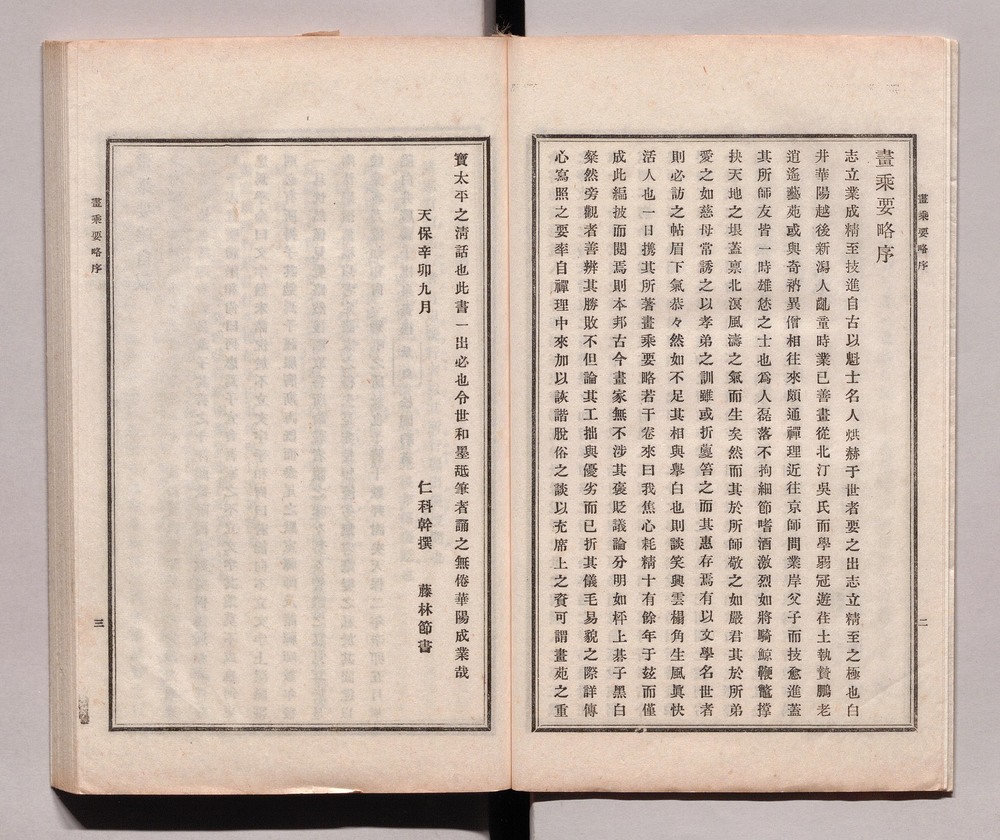 畫乘要略序
二
畫乘要略序
志立業成精至技進自古以魁士名人烘赫于世者要之出志立精至之極也白
井華陽越後新潟人齓童時業已善畫從北汀吳氏而學弱冠遊在土執贄鵬老
逍遙藝苑或與奇衲異僧相往來頗通禪理近往京師問業岸父子而技愈進蓋
其所師友皆一時雄恣之士也爲人磊落不拘細節嗜酒激烈如將騎鯨鞭鼇撑
抉天地之垠蓋稟北溟風濤之氣而生矣然而其於所師敬之如嚴君其於所弟
愛之如慈母常誘之以孝弟之訓雖或折蔓笞之而其惠存焉有以文學名世者
則必訪之帖眉下氣恭々然如不足其相與擧白也則談笑興雲榻角生風眞快
活人也一日携其所著畫乘要略若干卷來曰我焦心耗精十有餘年于玆而僅
成此編披而閱焉則本邦古今畫家無不涉其褒貶議論分明如枰上棊子黑白
粲然旁觀者善辨其勝敗不但論其工拙與優劣而已折其儀毛易貌之際詳傳
心寫照之要率自禪理中來加以詼諧脫俗之談以充席上之資可謂畫苑之重
寶太平之淸話也此書一出必也令世和墨舐筆者誦之無倦華陽成業哉
天保辛卯九月
仁科幹撰　藤林節書
畫乘要略序
三